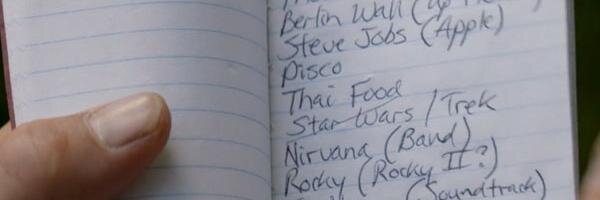 Berlin Wall (up
Steve Jobs (Apple)
Disco
Thai Food
Star Wars / Trek
Nirvana (Band)
Rocky (Rocky II?)
(Soundtrack)